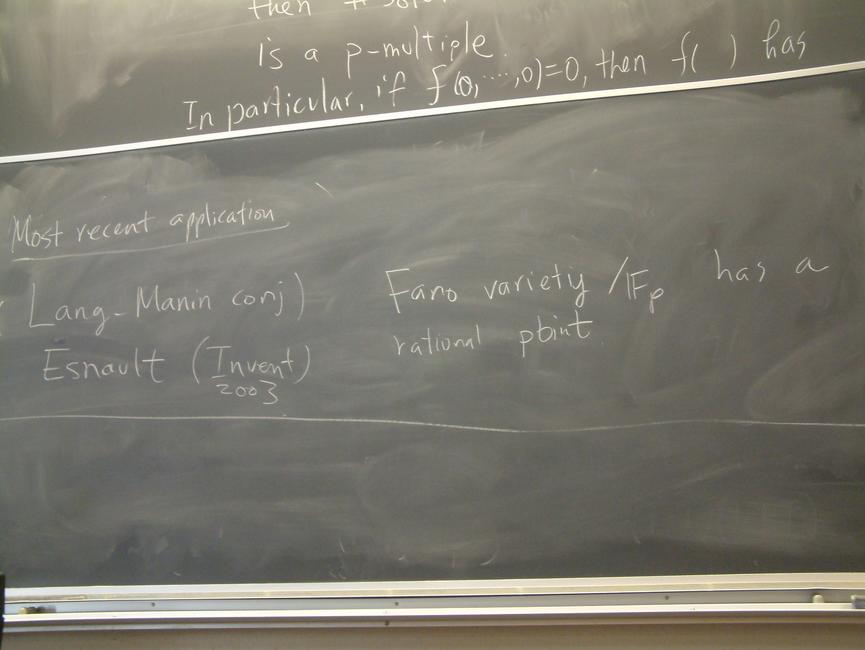 then # sol
is a p-multiple.
In particular, if f(0,⋯,0)=0, then f( ) has
Most recent application
(Lang-Manin conj)
Esnault (Invent)
2003
Fano variety /𝔽p has a
rational point.